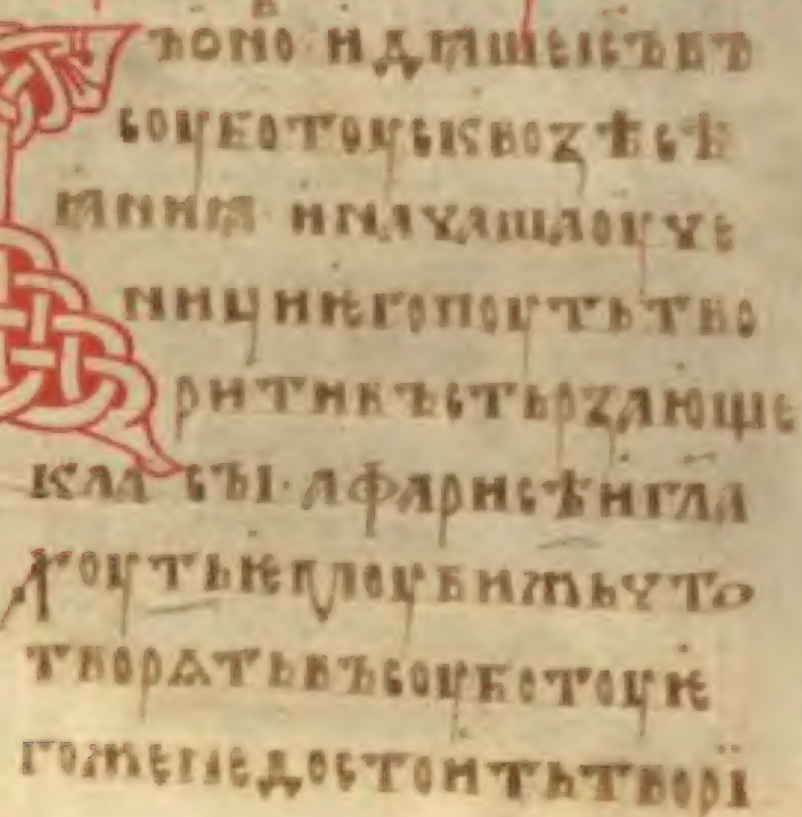 ъоно· идꙗшеіс҃ъвъ
соуботоусквозѣсѣ
ꙗниꙗ· иначашаоуче
нициѥгопоутьтво
ритикъстьрзающе
класы· афарисѣиг҃ла
хоутьѥмоубижьчто
творѧтьвъсоуботоуѥ
гоженедостоитьтворї